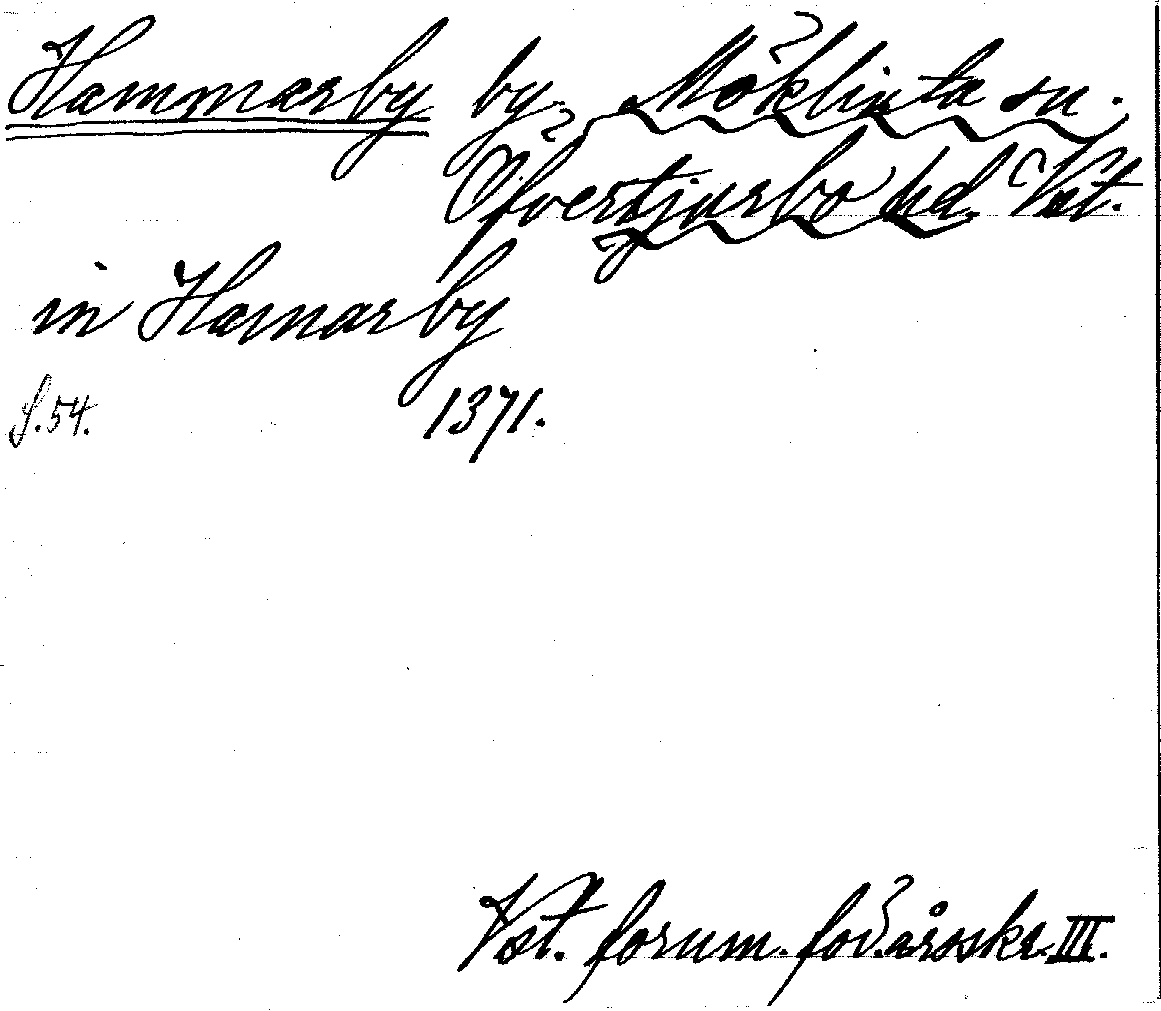 Hammarby by, Möklinta sn.
Öfvertjurbo hd. Vst.
in Hamarby
S. 54. 1371.
Vst. fornm. för. årsskr. III.